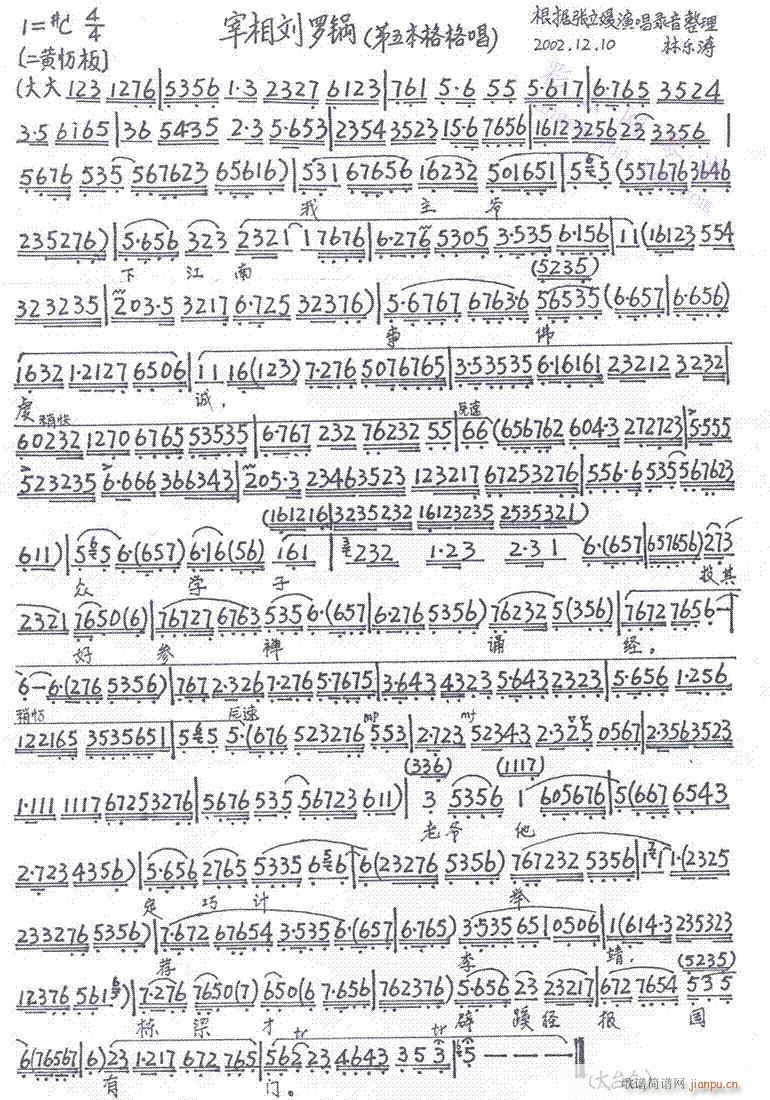 1=#C 4/4 宰相刘罗锅(第五本格格唱) 根据张立媛演唱录音整理
[二黄忉板] 2002.12.10 林乐涛
(大大 123 1276|5356 1·3 2327 6123|761 5·6 55 5·617|6·765 3524
3·5 6765|36 5435 2·3 5·653|2354 3523 15·6 7656|1612325623 3356|
5676 535 567623 65616)|531 67656 16232 501651|565(5576763646
我 主 爷
235276)|5·656 323 2321 17676|6·276 5305 3·535 6·156|11(16123 554
下 江 南
(5235)
323235|203·5 3217 6·725 32376)|5·6767 6763·6 56535(6·657|6·656)
事 佛
1632 1·2127 6506|11 16(123) 7·276 5076765|3·53535 6·16161 23212 3232|
虔 诚,
稍快 尾速
60232 1270 6765 53535|6·767 232 76232 55|66(656762 604·3 272723|5·555
523235 6·666 366343|205·3 23463523 123217 67253276|556·6 535567623
(161216|3235232 16123235 2535321)
611)|565 6·(657) 6·16(56) 161|232 1·23 2·31 6·(657|657656)273
众 学 子 投其
2321 7650(6)|76727 6763 535 6·(657|6·276 5356) 76232 5(356)|7672 7656-|
好 参 禅 诵 经。
6-6·(276 5356)|767 2·326 7·276 5·7675|3·643 4323 5·643 2323|5·656 1·256
稍忉 尾速 mp mf
122165 3535651|565 5·(676 523276 553|2·723 52343 2·325 0567|2·3563523
(336) (1117)
1·111 1117 67253276|5676 535 56723 611)|3 5356 1 605676|5(667 6543
老爷 他
2·723 4356)|5·656 2765 5335 656|6(23276 5356) 767232 5356|1 1·(2325
定 巧 计 举
233276 5356)|7·672 67654 3·535 6·(657|6·765) 3·535 651 0506|1(614·3 235323
荐 李 靖,
(5235)
12376 561)|7·276 7650(7) 650(6 7·656|762376) 5·656 23 23217|672 7654 535
栋 梁 才 辟 蹊 径 报 国
tr tr
6(76567|6)23 1·217 672 765|562 23 4643 353|5 - - -||
有 门。
(大台仓)
歌谱简谱网
jianpu.cn